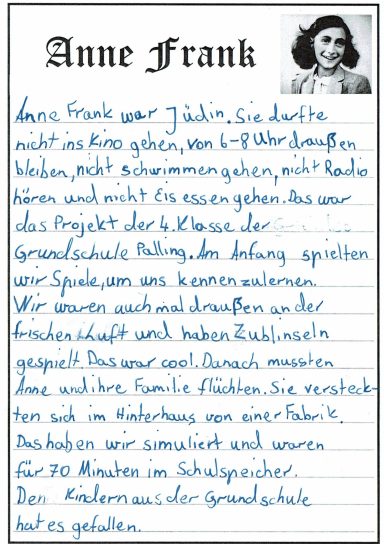 Anne Frank
Anne Frank war Jüdin. Sie durfte
nicht ins Kino gehen, von 6-8 Uhr draußen
bleiben, nicht schwimmen gehen, nicht Radio
hören und nicht Eis essen gehen. Das war
das Projekt der 4. Klasse der
Grundschule Palling. Am Anfang spielten
wir Spiele, um uns kennenzulernen.
Wir waren auch mal draußen an der
frischen Luft und haben Zublinseln
gespielt. Das war cool. Danach mussten
Anne und ihre Familie flüchten. Sie versteck-
ten sich im Hinterhaus von einer Fabrik.
Das haben wir simuliert und waren
für 70 Minuten im Schulspeicher.
Den Kindern aus der Grundschule
hat es gefallen.